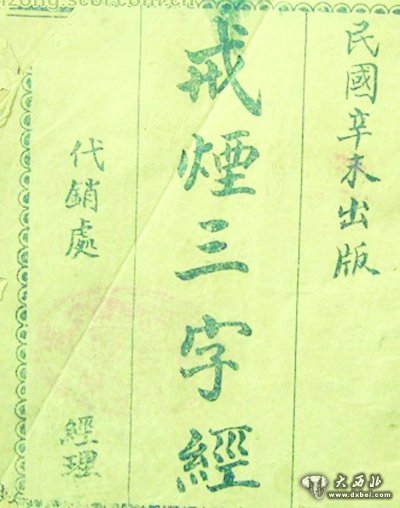 民國辛未出版
戒煙三字經
代銷處
經理
大西北
www.dxbei.com